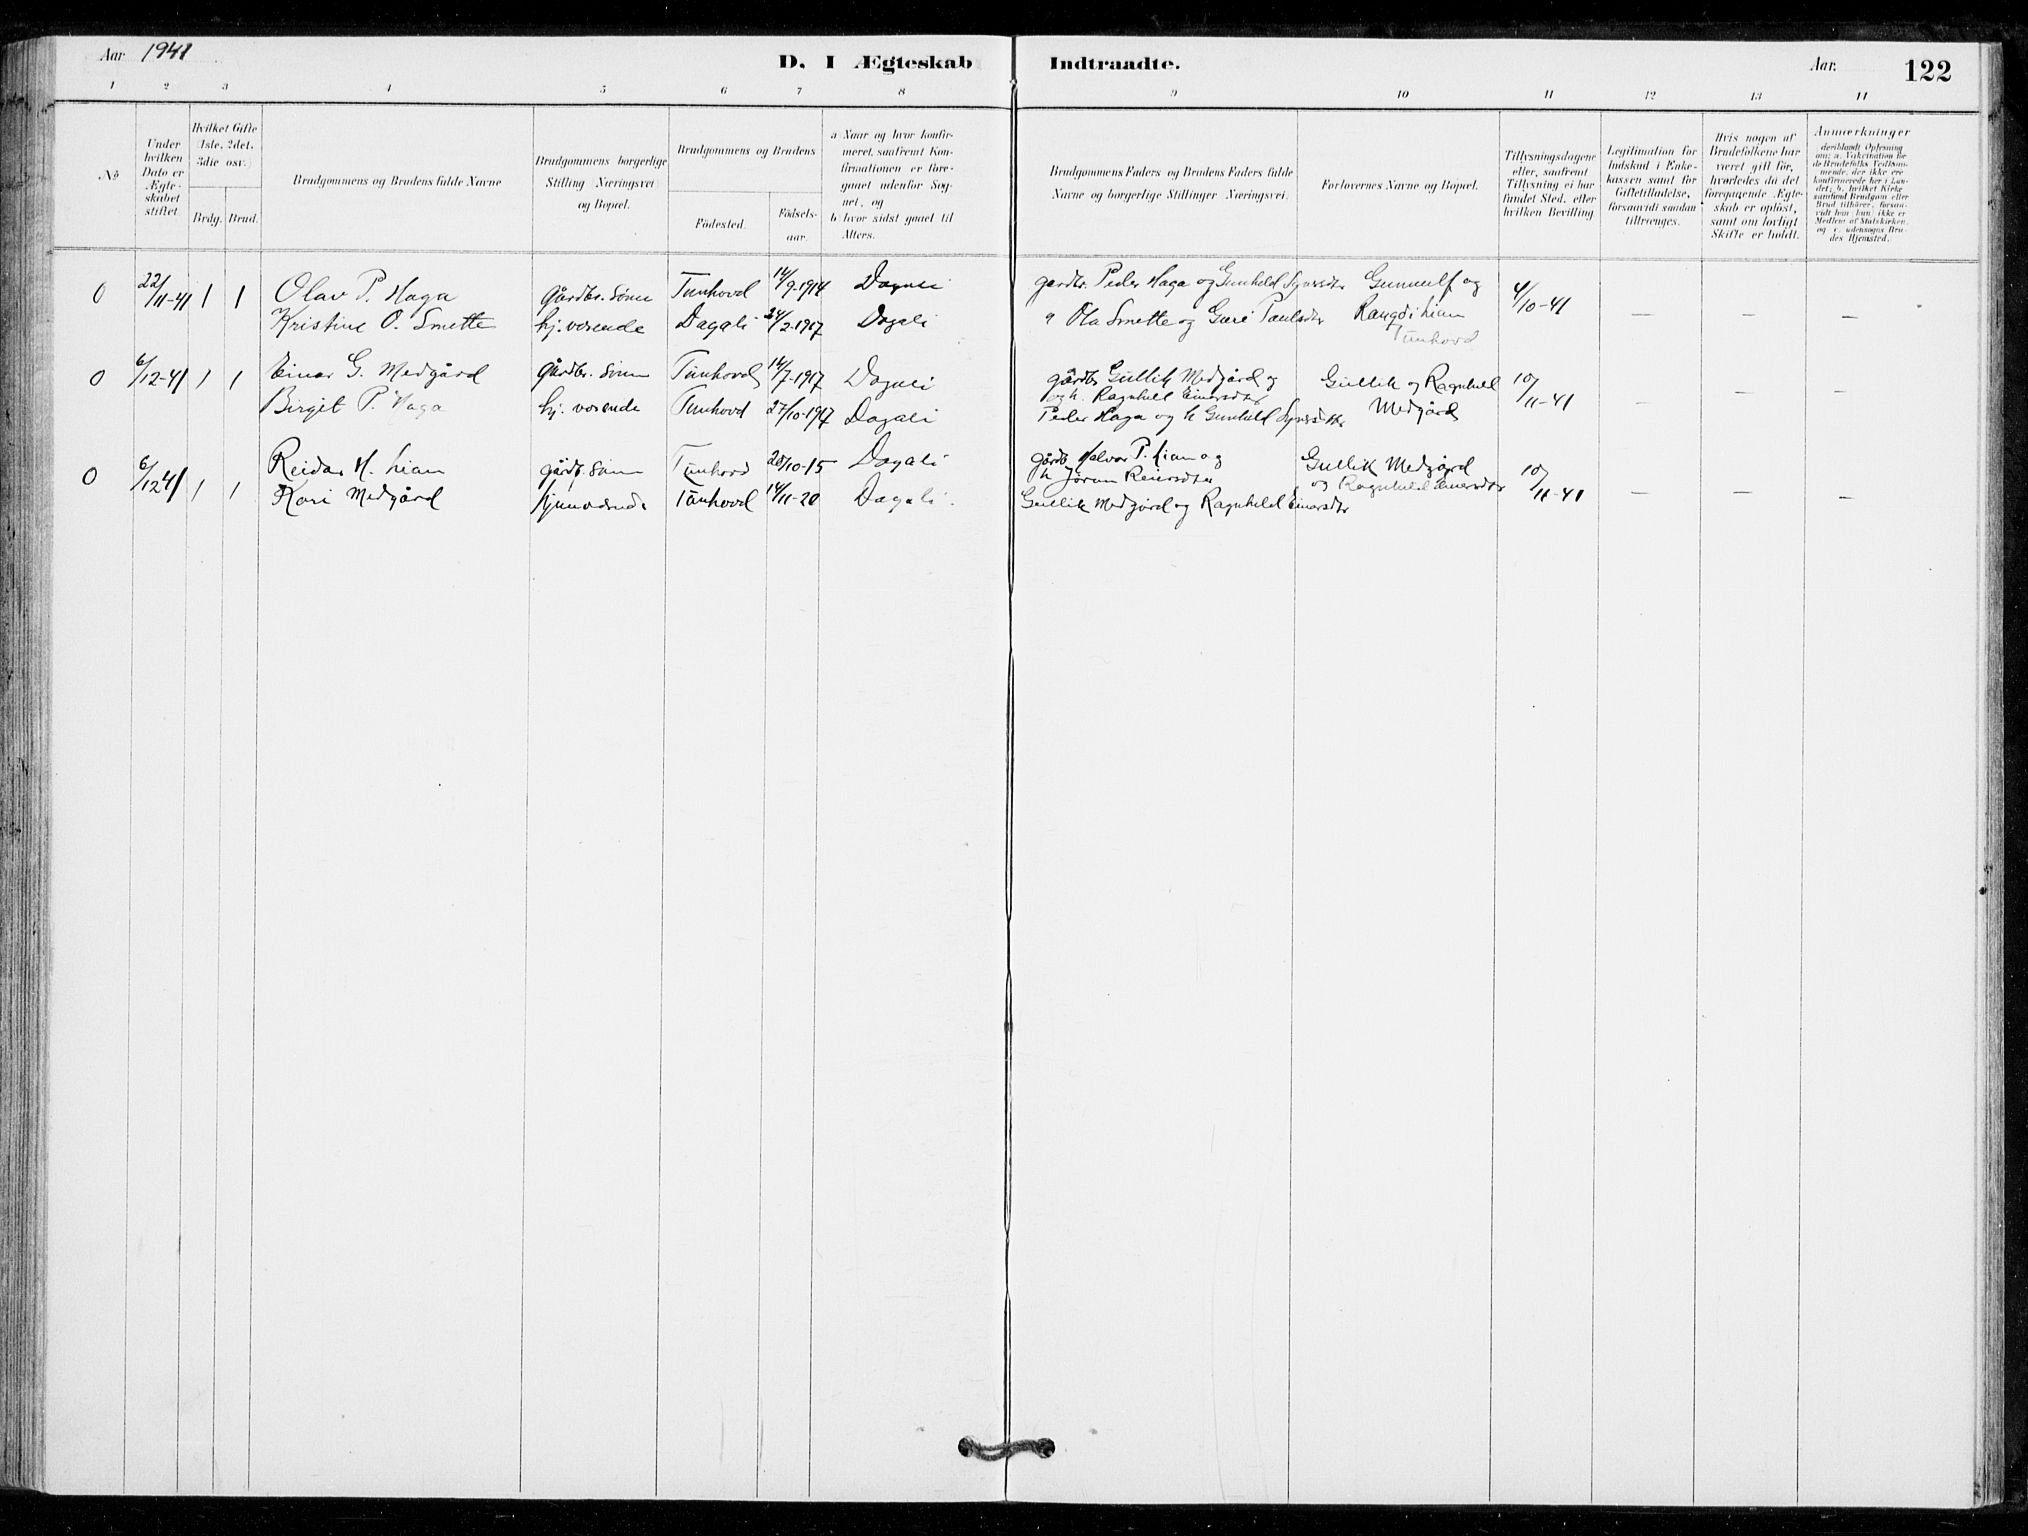 Aar 1941
D. I Ægteskab Indtraadte.
Aar.
122
1 2 3 4 5 6 7 8 9 10 11 12 13 14
No
Under hvilken Dato er Ægteskabet stiftet
Hvilket Gifte 1ste, 2det, 3die osv.
Brdg. Brud.
Brudgommens og Brudens fulde Navne
Brudgommens borgerlige Stilling Næringsvei og Bopæl.
Brudgommens og Brudens
Födested.
Födselsaar.
a Naar og hvor konfirmeret, saafremt Konfirmationen er foregaaet udenfor Sognet, og
b hvor sidst gaaet til Alters.
Brudgommens Faders og Brudens Faders fulde Navne og borgerlige Stillinger Næringsvei.
Forlovernes Navne og Bopæl.
Tillysningsdagene eller, saafremt Tillysning ei har fundet Sted, efter hvilken Bevilling
Legitimation for Indskud i Enkekassen samt for Giftetilladelse, forsaavidt saadan tiltrænges.
Hvis nogen af Brudefolkene har været gift för, hvorledes da det foregaaende Ægteskab er oplöst, samt om lovligt Skifte er holdt.
Anmærkninger deriblandt Oplysning om: a. Vakcination for de Brudefolks Vedkommende, der ikke ere konfirmerede her i Landet; b. hvilket Kirkesamfund Brudgom eller Brud tilhörer, forsaavidt han (hun) ikke er Medlem af Statskirken, og c. udensogns Brudes Hjemsted.
0 22/11-41 1 1 Olav P. Haga gårdbr. sønn Tunhovd 14/9-1914 Dagali gardbr. Peder Haga og Gunhild Gunnulf og 4/10-41
Kristine O. Smette hj. værende Dagali 24/2-1917 Dagali " Ola Smette og Guri Paulsdtr Rangdi Lian — — —
Tunhovd
0 6/12-41 1 1 Einar G. Medgård Gårdbr. sønn Tunhovd 14/7-1917 Dagali gårdbr Gullik Medgård og Gullik og Ragnhild 10/11-41
og h. Ragnhild Einarsdtr Medgård — — —
Birgit P. Haga hj. værende Tunhovd 27/10-1917 Dagali Peder Haga og h Gunhild
0 6/12 41 1 1 Reidar H. Lian gårdb. sønn Tunhovd 20/10-15 Dagali gårdb. Halvor P. Lian og Gullik Medgård 10/11-41
h Jørun Reiersdtr og Ragnhild Einarsdtr — — —
Kari Medgård hjemværende Tunhovd 14/11-20 Dagali. Gullik Medgård og Ragnhild Einarsdtr